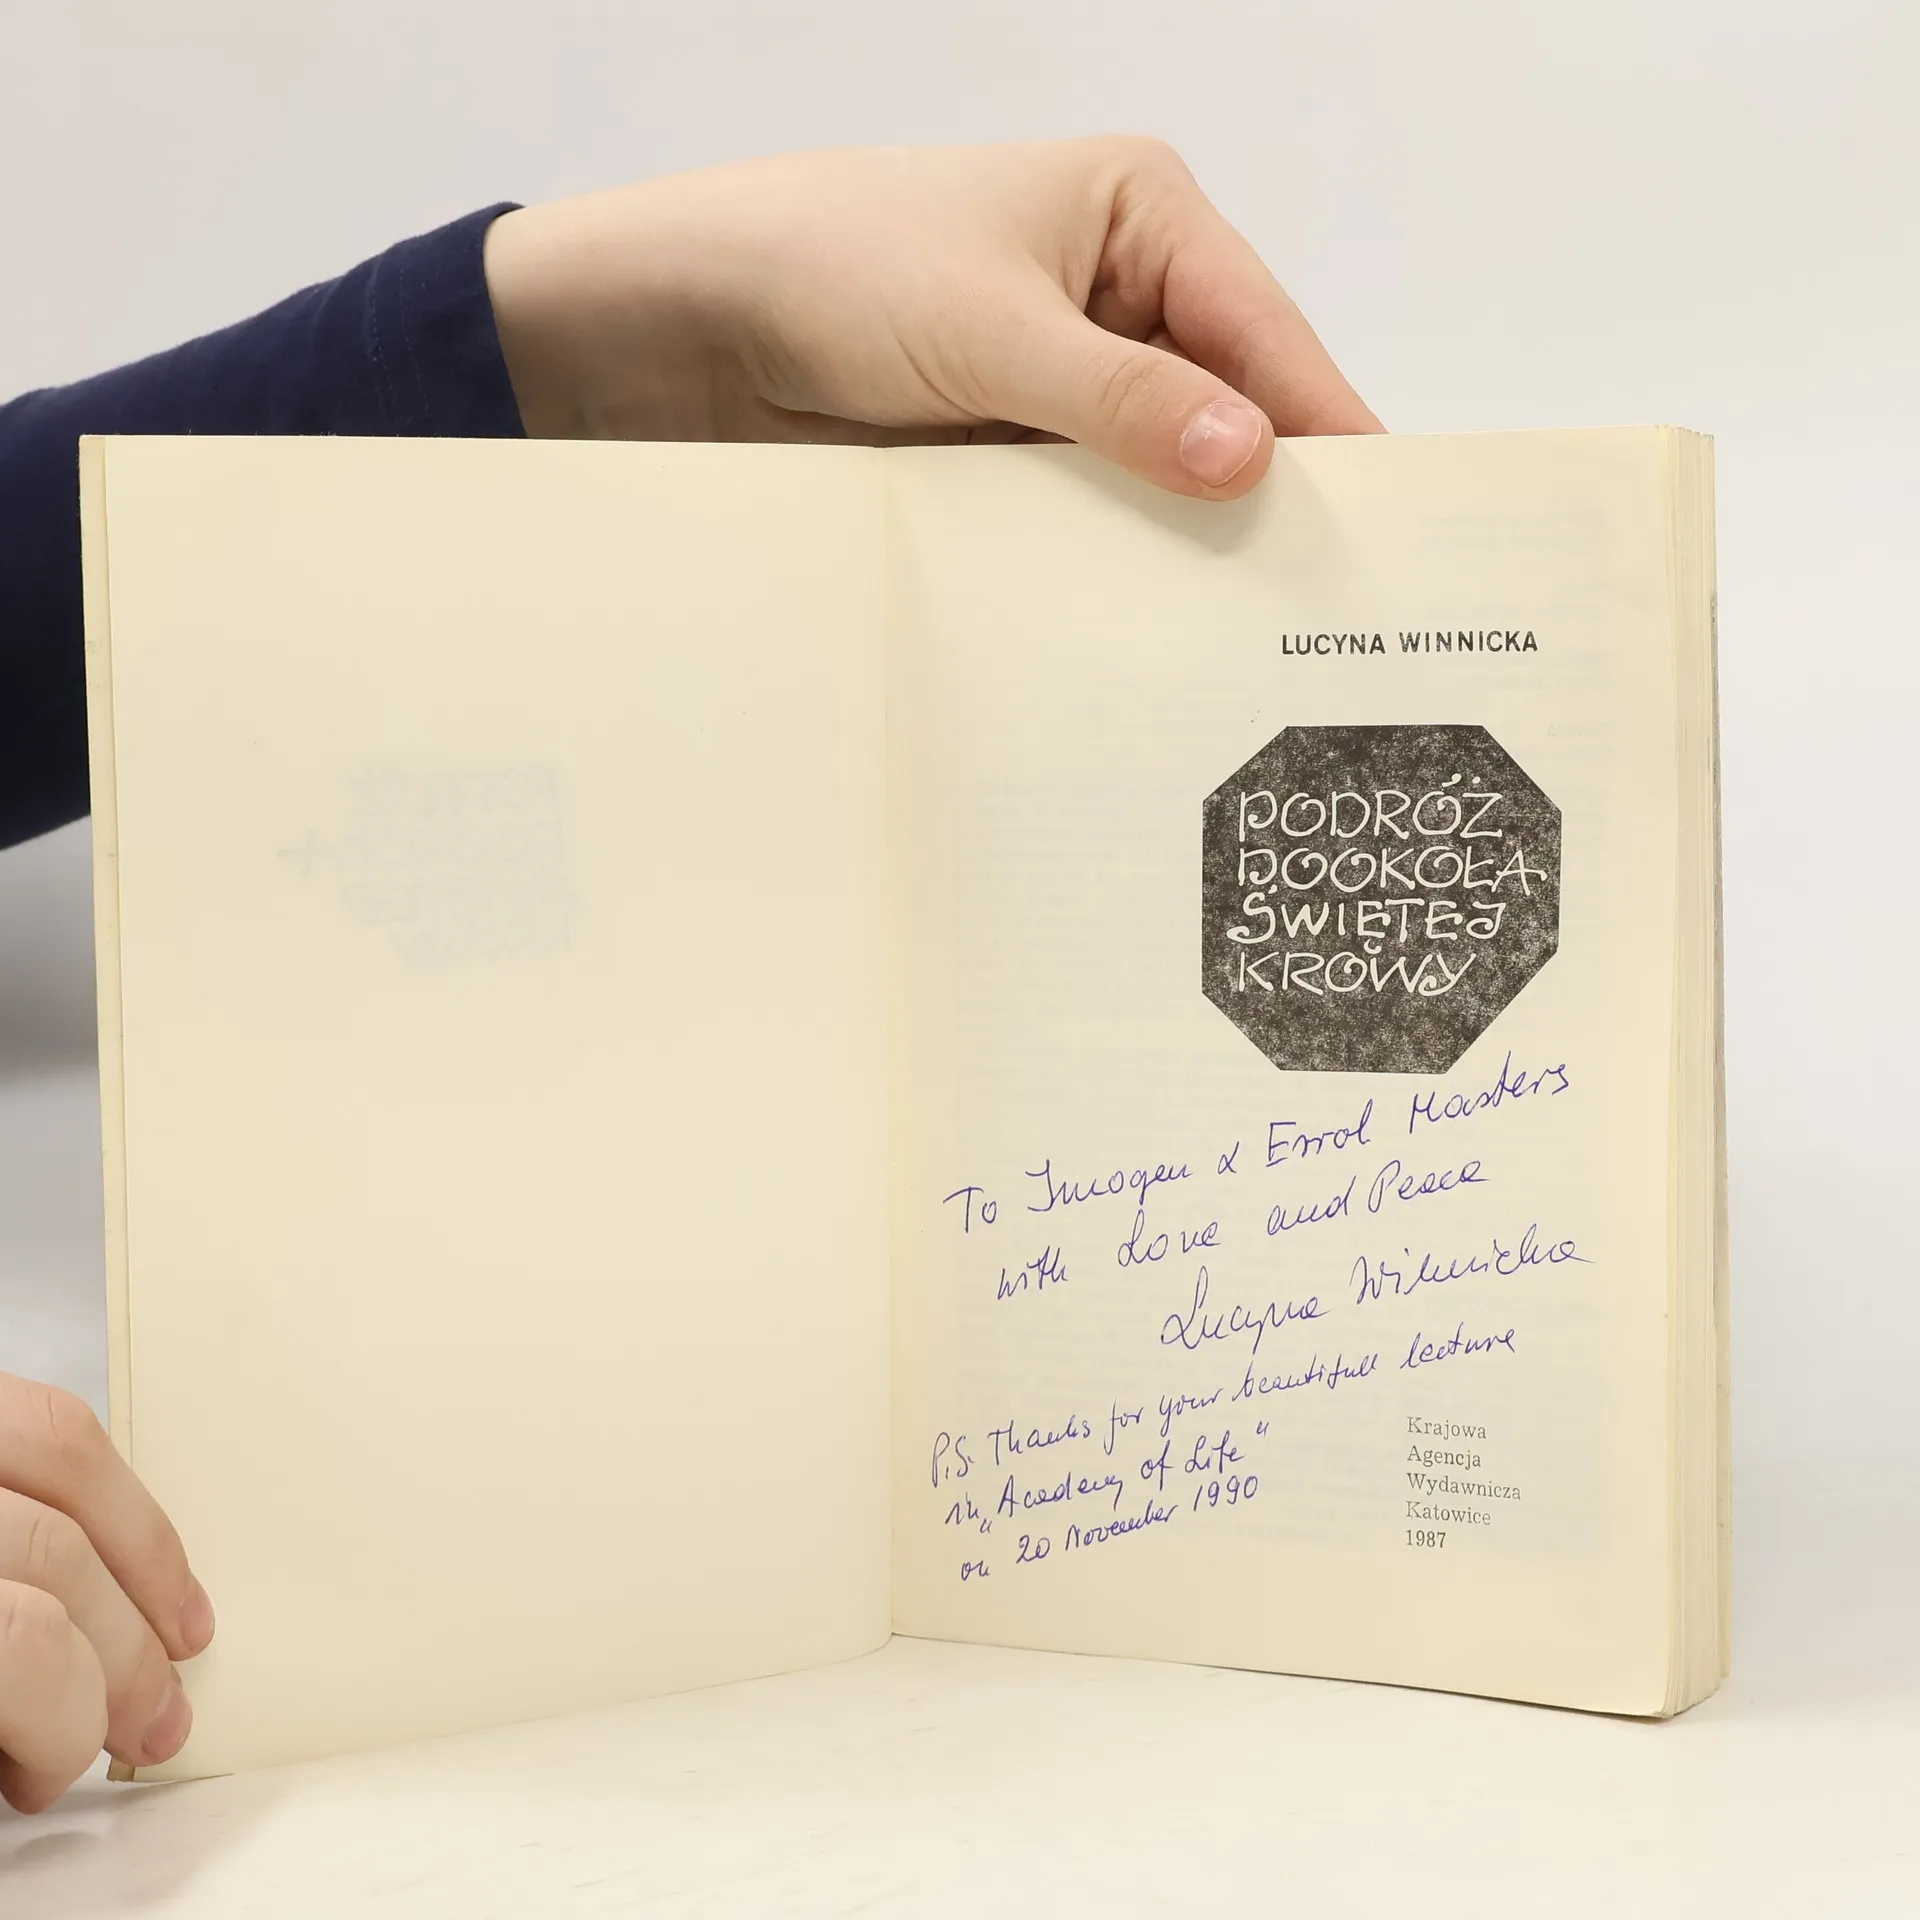 LUCYNA WINNICKA
PODRÓŻ
DOOKOŁA
ŚWIĘTEJ
KROWY
To Imogen & Errol Masters
with Love and Peace
Lucyna Winnicka
P.S. Thanks for your beautifull lecture
in „Academy of Life"
on 20 November 1990
Krajowa
Agencja
Wydawnicza
Katowice
1987